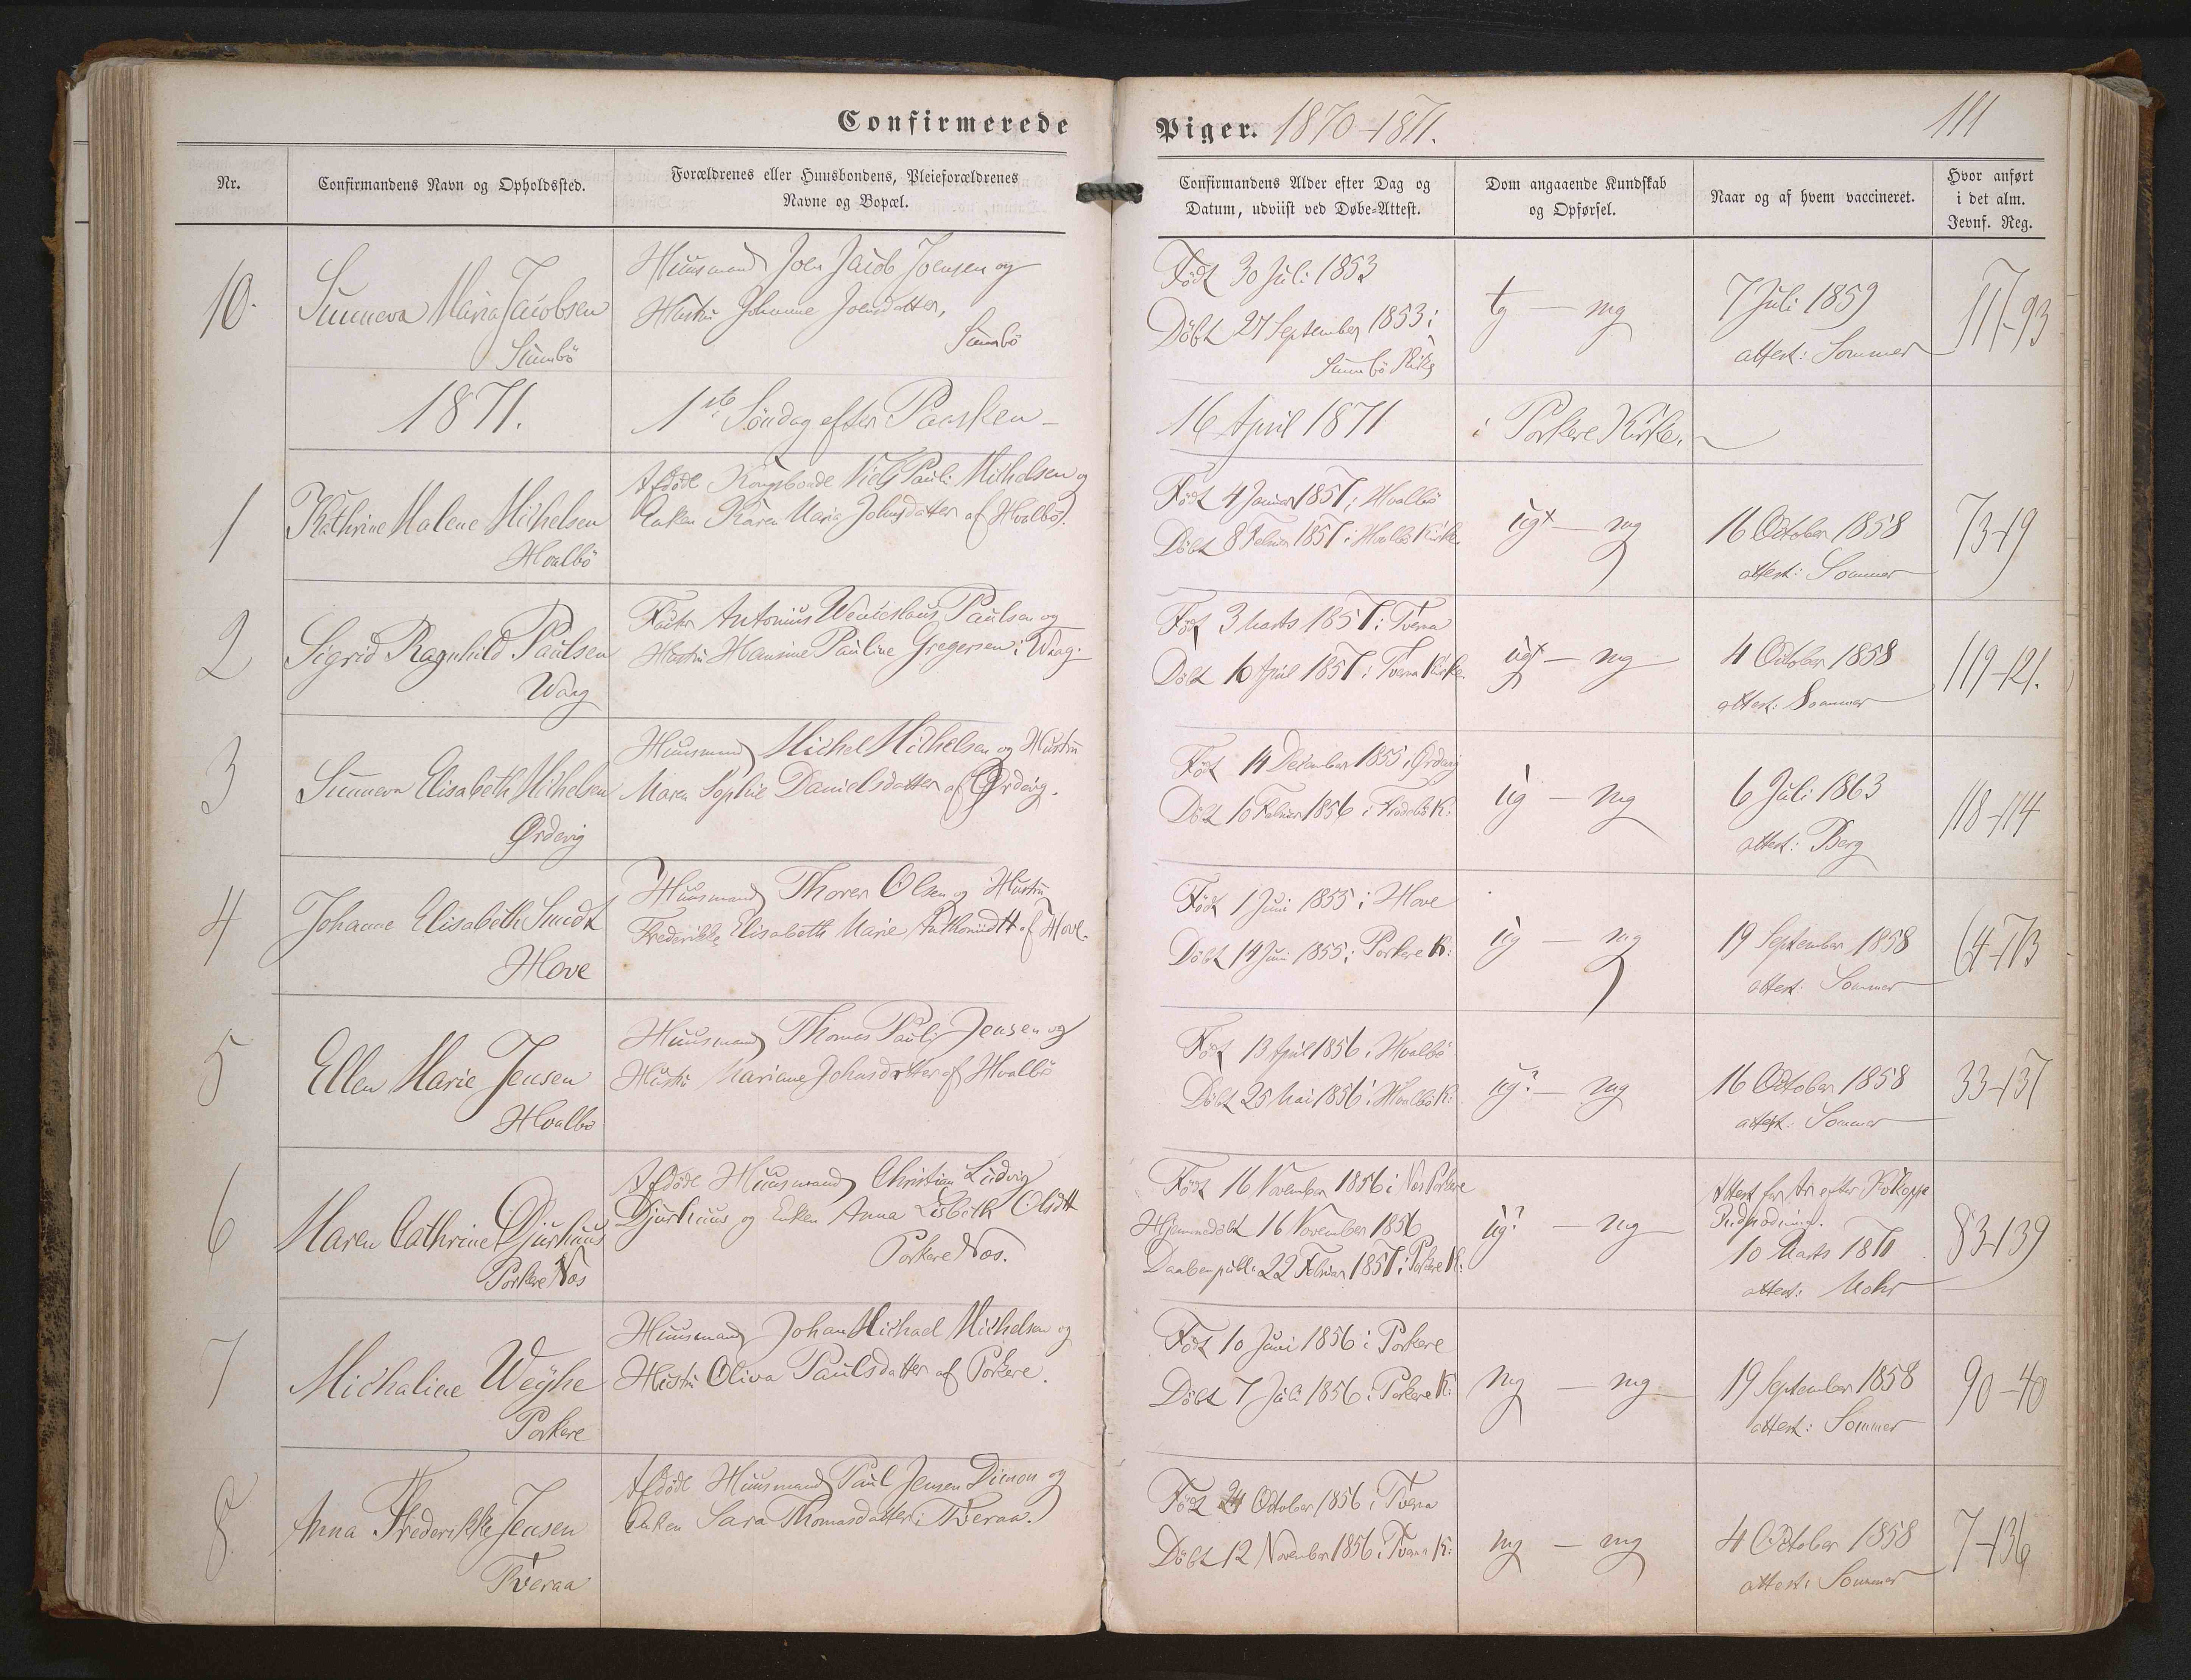 Confirmerede
Piger. 1870-1871.
111
Nr.
Confirmandens Navn og Opholdssted.
Forældrenes eller Huusbondens, Pleieforældrenes
Navne og Bopæl.
Confirmandens Alder efter Dag og
Datum, udviist ved Døbe-Attest.
Dom angaaende Kundskab
og Opførsel.
Naar og af hvem vaccineret.
Hvor anført
i det alm.
Jevnf. Reg.
10.
Sunneva Maria Jacobsen
Sumbö
Huusmand Joen Jacob Joensen og
Hustru Johanne Joensdatter,
Sumbö
Født 30 Juli 1853
Döbt 27 September 1853 i
Sumbö Kirke
tg — mg
7 Juli 1859
attest: Sommer
117-93
1871.
1ste Söndag efter Paasken -
16 April 1871
i Porkere Kirke.
1
Kathrine Malene Michelsen
Hvalbö
Afdöde Kongsbonde Niels Pauli Michelsen og
Enken Karen Maria Johnsdatter af Hvalbö.
Født 4 Januar 1857 i Hvalbö
Döbt 8 Februar 1857 i Hvalbö Kirke
ug+ — mg
16 October 1858
attest: Sommer
73-19
2
Sigrid Ragnhild Paulsen
Waag
Factor Antonius Wenceslaus Paulsen og
Hustru Hansine Pauline Gregersen i Waag.
Født 3 Marts 1857 i Tveraa
Döbt 10 April 1857 i Tveraa Kirke.
ug+ — mg
4 October 1858
attest: Sommer
119-121.
3
Sunneva Elisabeth Michelsen
Ørdevig
Huusmand Michel Michelsen og Hustru
Maren Sophie Danielsdatter af Ørdevig.
Født 14 December 1855 i Ørdevig
Döbt 10 Februar 1856 i Frodebö K:
ug — mg
6 Juli 1863
attest: Berg
118-114
4
Johanne Elisabeth Smidt
Hove
Huusmand Thorer Olsen og Hustru
Frederikke Elisabeth Marie af Hove.
Født 1 Juni 1855 i Hove
Döbt 14 Juni 1855 i Porkere K:
ug — mg
19 September 1858
attest: Sommer
64-113
5
Ellen Marie Jensen
Hvalbö
Huusmand Thomas Pauli Jensen og
Hustru Mariane Johnsdatter af Hvalbö
Født 13 April 1856 i Hvalbö
Döbt 25 Mai 1856 i Hvalbö K:
ug? — mg
16 October 1858
attest: Sommer
33-137
6
Maren Cathrine Djurhuus
Porkere Næs
Afdöde Huusmand Christian Ludvig
Djurhuus og Enken Anna Lisbeth Olsdtt
Porkere Næs.
Født 16 November 1856 i Næs Porkere
Hjemmedöbt 16 November 1856
Daaben publ: 22 Februar 1857 i Porkere K:
ug? — mg
Attest for Ar efter Kokoppe
10 Marts 1870
attest: Mohr
83-139
7
Michaline Weyhe
Porkere
Huusmand Johan Michael Michelsen og
Hustru Oliva Paulsdatter af Porkere.
Født 10 Juni 1856 i Porkere
Döbt 7 Juli 1856 i Porkere K:
mg — mg
19 September 1858
attest: Sommer
90-40
8.
Anna Frederikke Jensen
Tveraa
Afdöde Huusmand Paul Jensen Dimon og
Enken Sara Thomasdatter i Tveraa.
Født 24 October 1856 i Tveraa
Döbt 12 November 1856 i Tveraa K:
mg — mg
4 October 1858
attest: Sommer
7-136